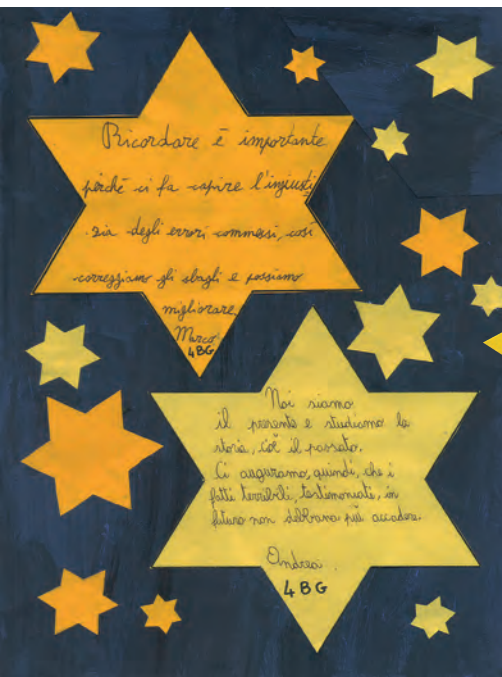 Ricordare è importante
perchè ci fa capire l'ingiusti
zia degli errori commessi, così
correggiamo gli sbagli e possiamo
migliorare.
Marco
4BG
Noi siamo
il presente e studiamo la
storia, cioè il passato.
Ci auguriamo, quindi, che i
fatti terribili, testimoniati, in
futuro non debbano più accadere.
Andrea.
4BG